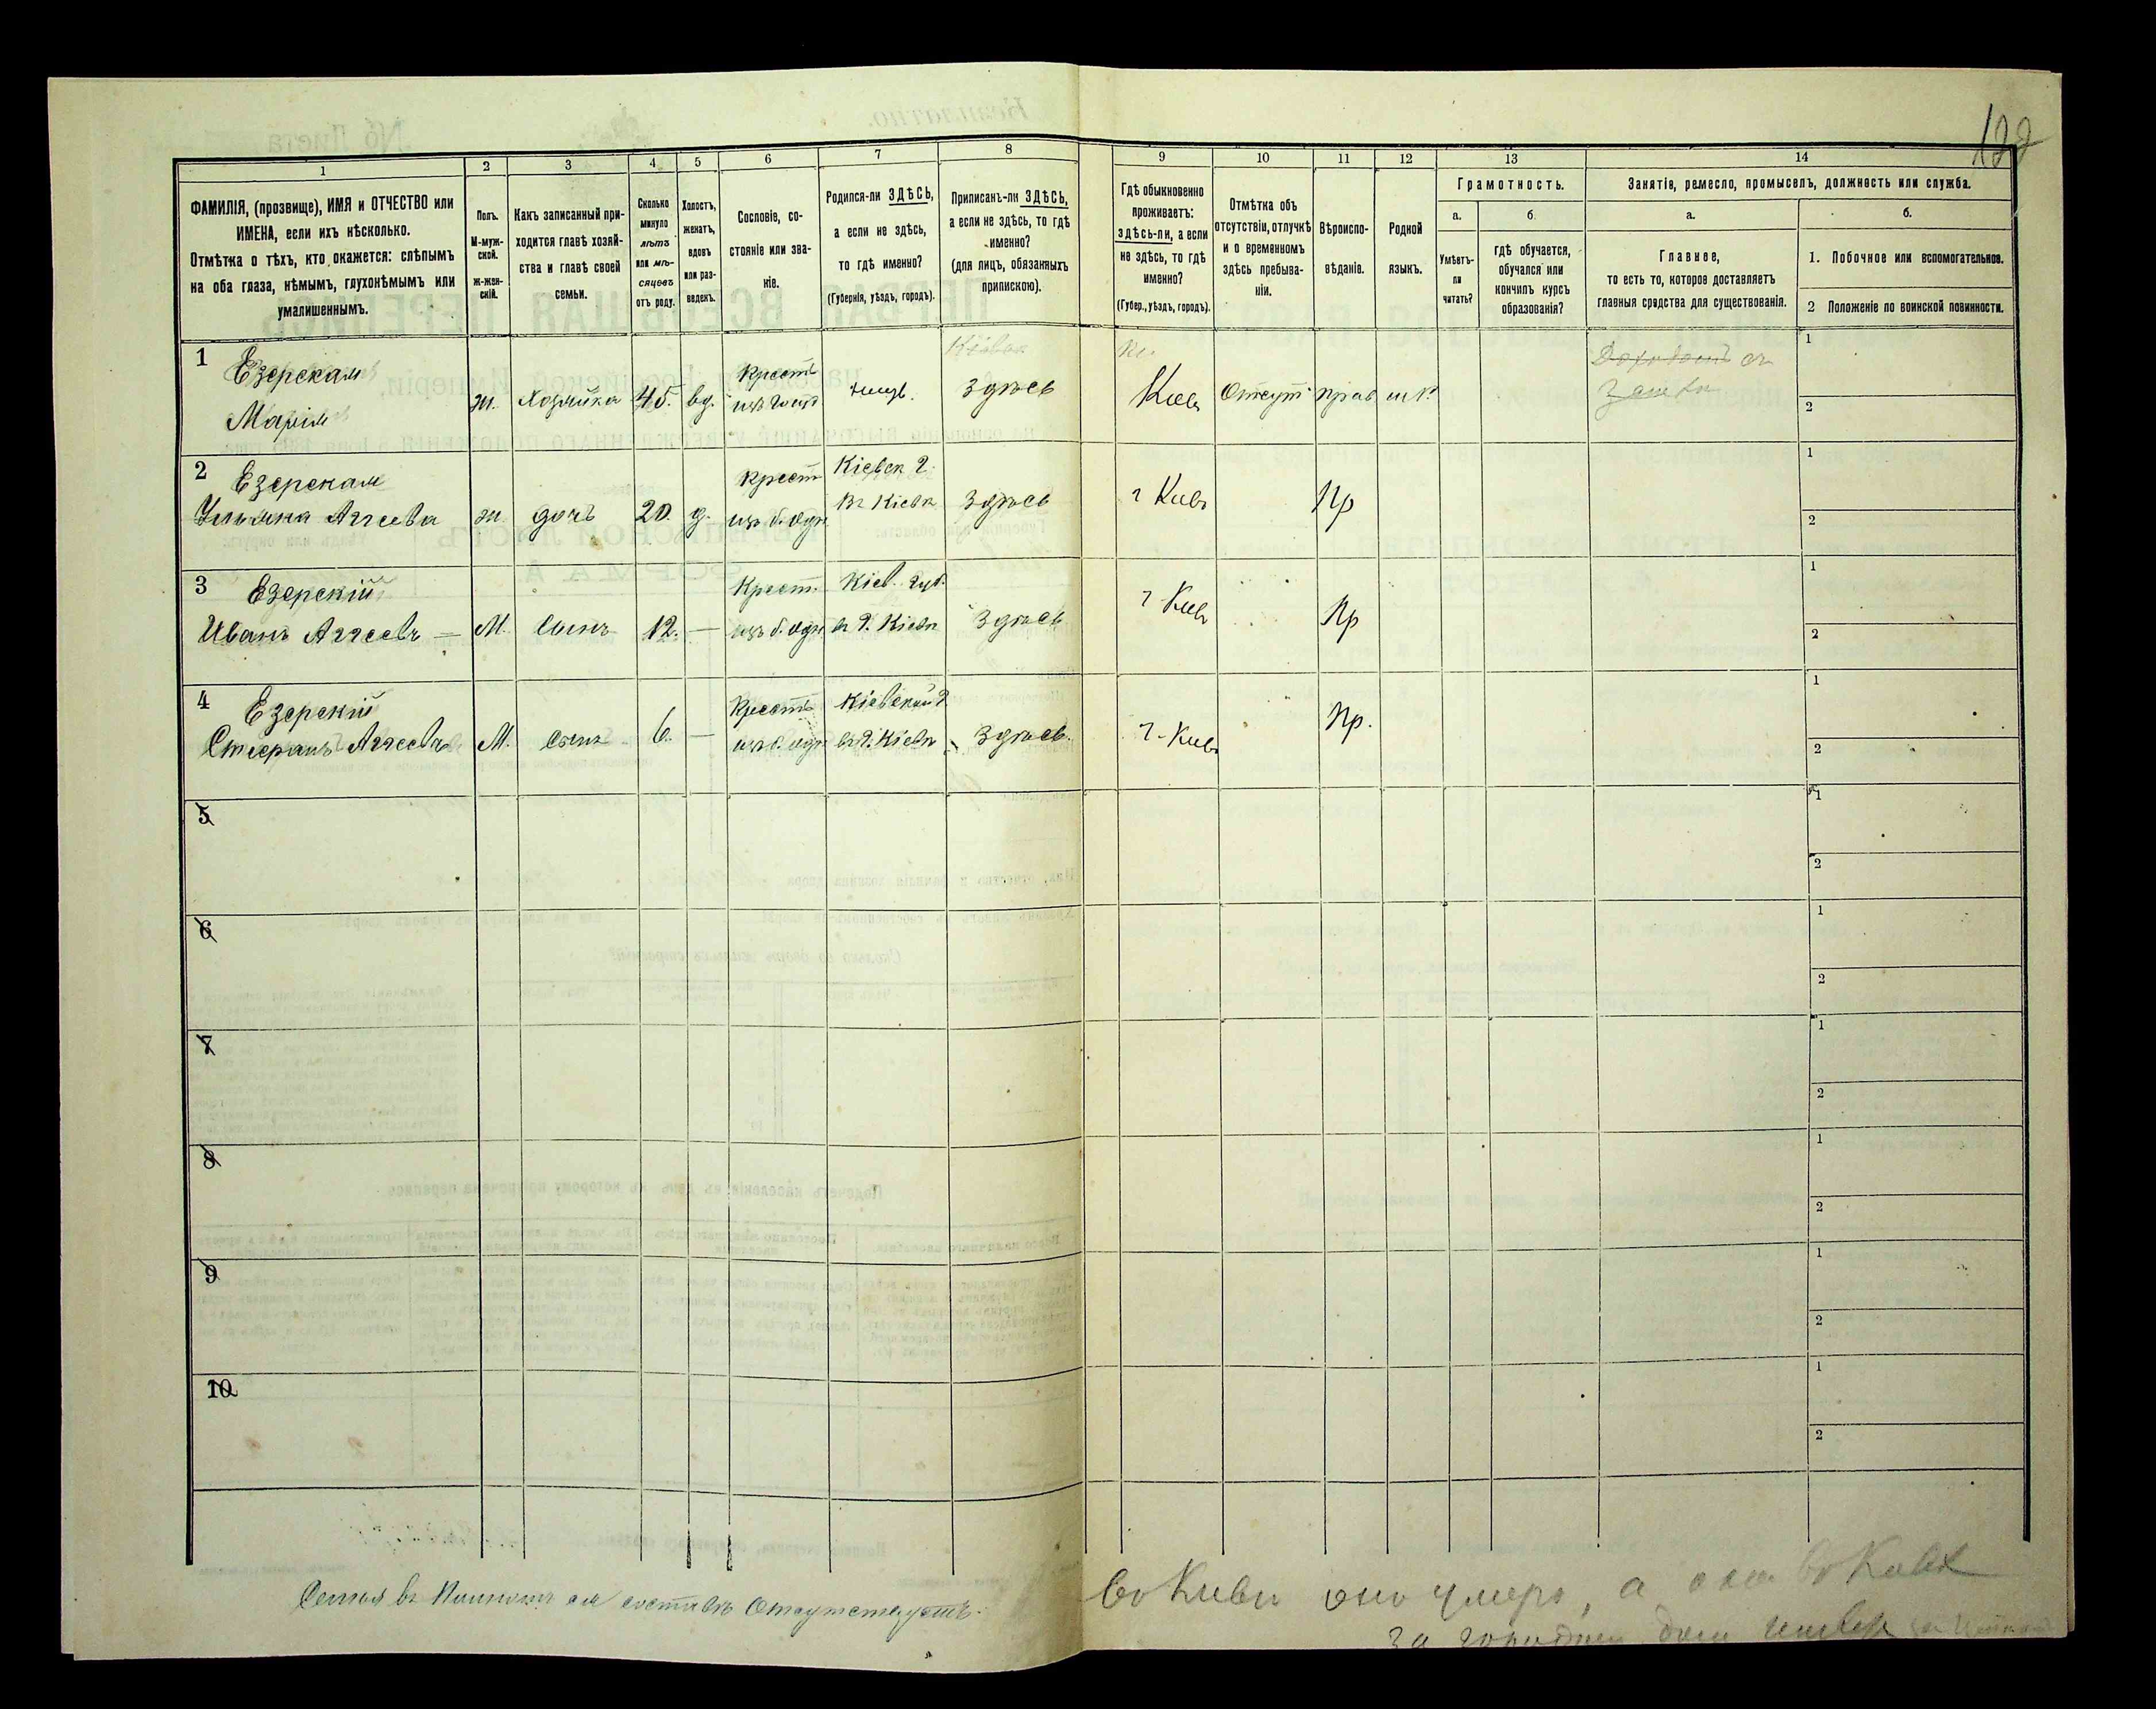 122
1 2 3 4 5 6 7 8 9 10 11 12 13 14
ФАМИЛІЯ, (прозвище), ИМЯ и ОТЧЕСТВО или
ИМЕНА, если ихъ нѣсколько.
Отмѣтка о тѣхъ, кто окажется: слѣпымъ
на оба глаза, нѣмымъ, глухонѣмымъ или
умалишеннымъ.
Полъ.
М-муж-
ской.
Ж-жен-
скій.
Какъ записанный при-
ходится главѣ хозяй-
ства и главѣ своей
семьи.
Сколько
минуло
лѣтъ
или мѣ-
сяцевъ
отъ роду.
Холостъ,
женатъ,
вдовъ
или раз-
веденъ.
Сословіе, со-
стояніе или зва-
ніе.
Родился-ли ЗДѢСЬ,
а если не здѣсь,
то гдѣ именно?
(Губернія, уѣздъ, городъ).
Приписанъ-ли ЗДѢСЬ,
а если не здѣсь, то гдѣ
именно?
(для лицъ, обязанныхъ
припискою).
Гдѣ обыкновенно
проживаетъ:
здѣсь-ли, а если
не здѣсь, то гдѣ
именно?
(Губер., уѣздъ, городъ).
Отмѣтка объ
отсутствіи, отлучкѣ
и о временномъ
здѣсь пребыва-
ніи.
Вѣроиспо-
вѣданіе.
Родной
языкъ.
Грамотность.
а.
Умѣетъ-
ли
читать?
б.
гдѣ обучается,
обучался или
кончилъ курсъ
образованія?
Занятіе, ремесло, промыселъ, должность или служба.
а.
Главное,
то есть то, которое доставляетъ
главныя средства для существованія.
б.
1. Побочное или вспомогательное.
2 Положеніе по воинской повинности.
1 Езерская
Марія
ж. Хозяйка 45. вд. Крест здѣсь Кіев Отсут прав
1
2
2 Езерская
Ульяна Аггеева
ж. дочь 20. д. Крест
изъ б. одн
Кіевск г.
въ Кіевѣ
здѣсь г Кіевъ Пр
1
2
3 Езерскій
Иванъ Аггеевъ —
М. сынъ 12. — Крест.
изъ б. одн
Кіев. губ.
в г. Кіевѣ
здѣсь г Кіев Пр
1
2
4 Езерскій
Стефанъ Аггеевъ
М. сынъ 6. — Крест
изъ б. одн
Кіевской г
въ г. Кіевѣ
здѣсь. г. Кіевъ Пр.
1
2
5
1
2
6
1
2
7
1
2
8
1
2
9
1
2
10
1
2
Семья въ полномъ ея составѣ отсутствуетъ.
во Кіевѣ оно умеръ, а она во Кіевѣ
за